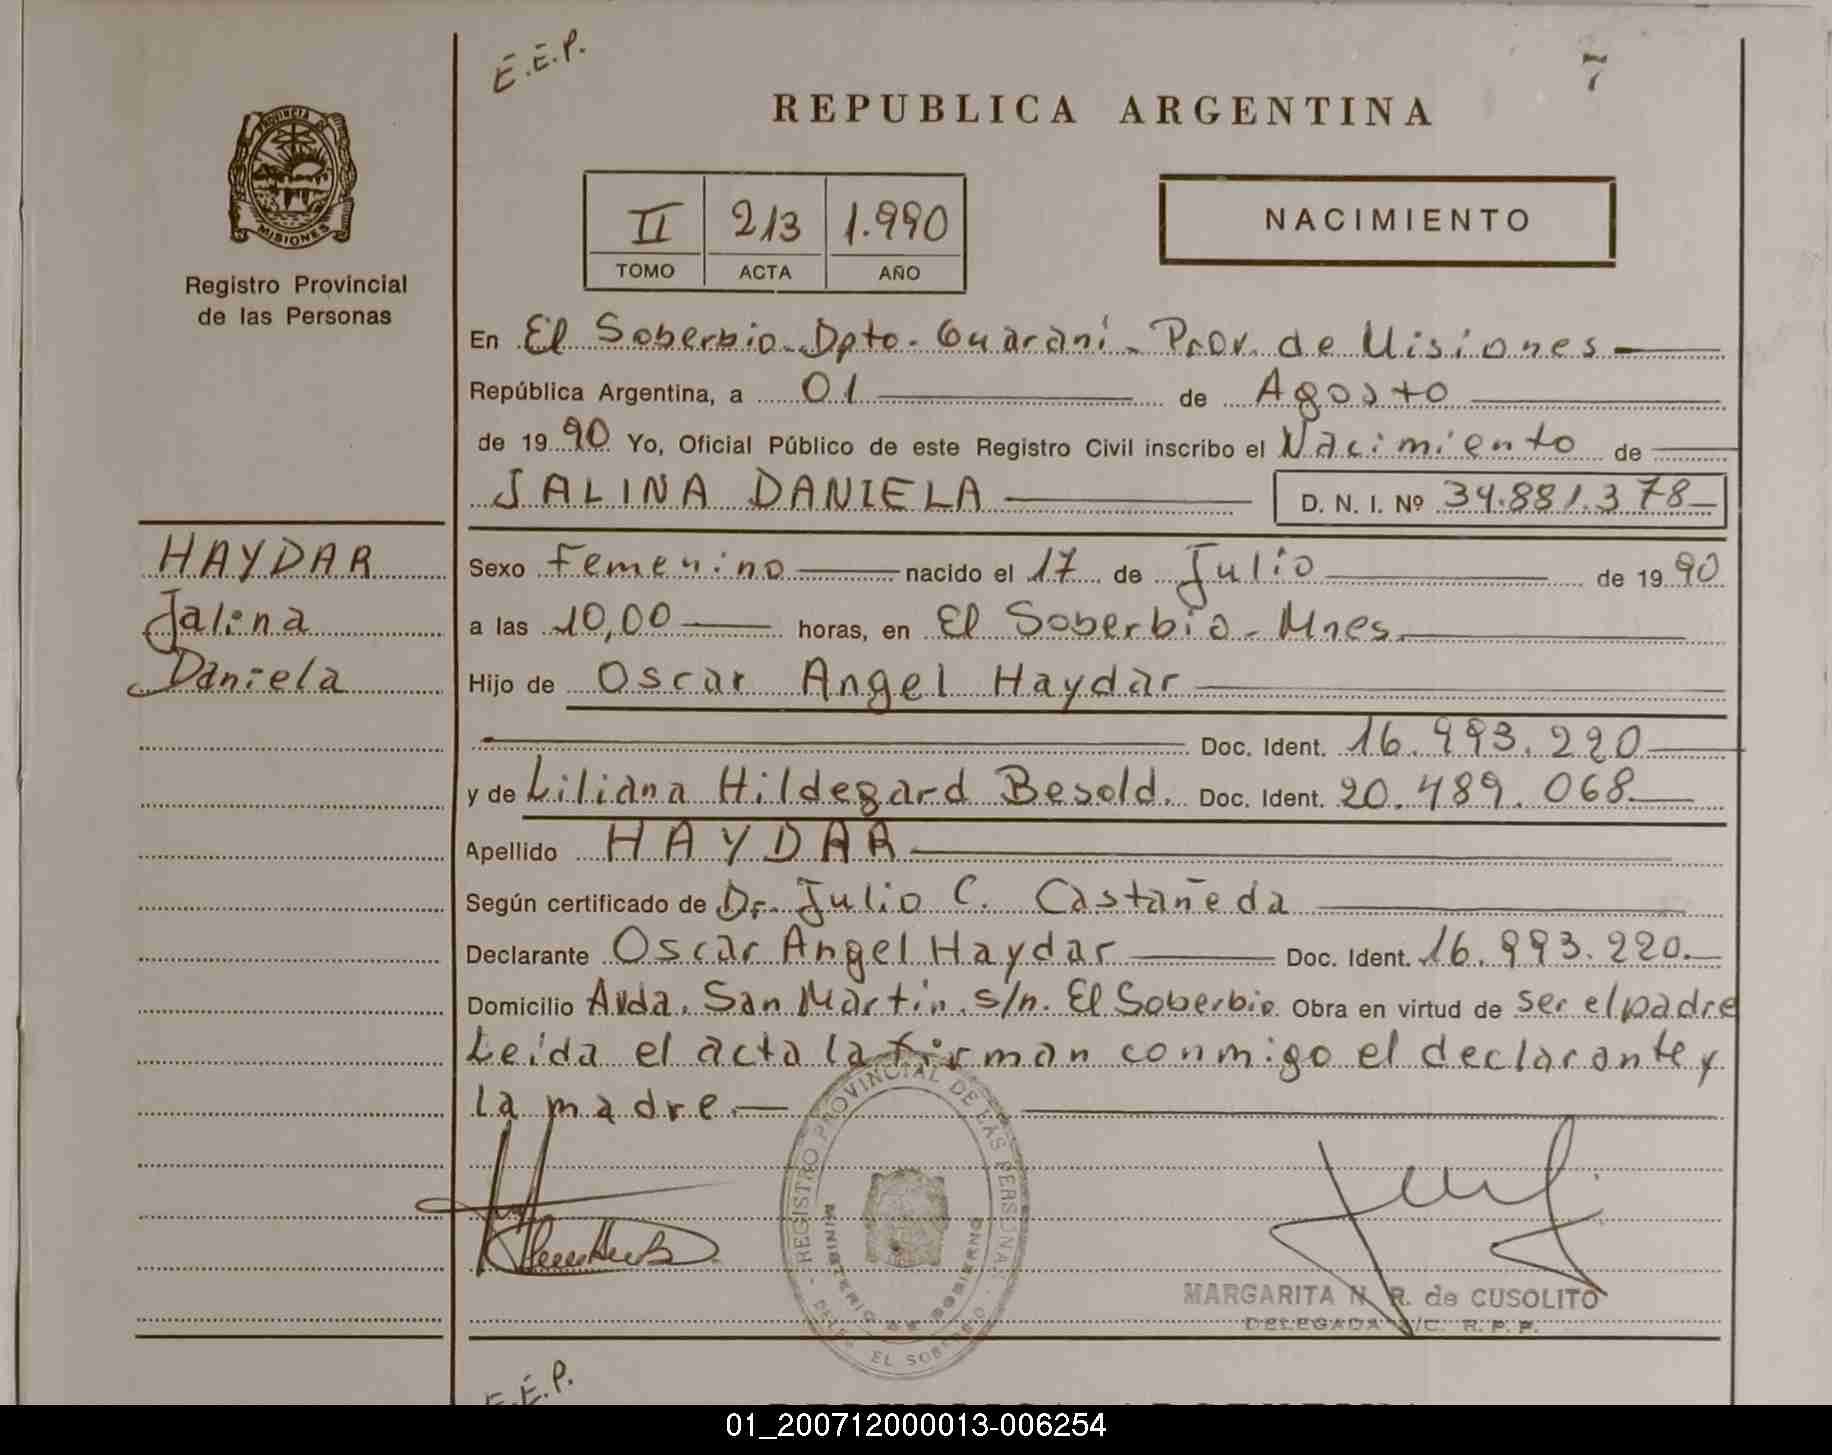 E.E.P.
7
REPUBLICA ARGENTINA
PROVINCIA DE
MISIONES
Registro Provincial
de las Personas
II 213 1.990
TOMO ACTA AÑO
NACIMIENTO
En El Soberbio - Dpto. Guaraní - Prov. de Misiones
República Argentina, a 01 de Agosto
de 1990 Yo, Oficial Público de este Registro Civil inscribo el Nacimiento de
JALINA DANIELA D. N. I. Nº 34.881.378
HAYDAR
Jalina
Daniela
Sexo Femenino nacido el 17 de Julio de 1990
a las 10,00 horas, en El Soberbio - Mnes.
Hijo de Oscar Angel Haydar
Doc. Ident. 16.993.220
y de Liliana Hildegard Besold. Doc. Ident. 20.489.068
Apellido HAYDAR
Según certificado de Dr. Julio C. Castañeda
Declarante Oscar Angel Haydar Doc. Ident. 16.993.220.
Domicilio Avda. San Martín s/n. El Soberbio Obra en virtud de ser el padre
Leída el acta la firman conmigo el declarante y
la madre
REGISTRO PROVINCIAL DE LAS PERSONAS
MINISTERIO DE GOBIERNO
EL SOBERBIO
MARGARITA N. R. de CUSOLITO
DELEGADA /C. R. P. P.
E.E.P.
01_200712000013-006254